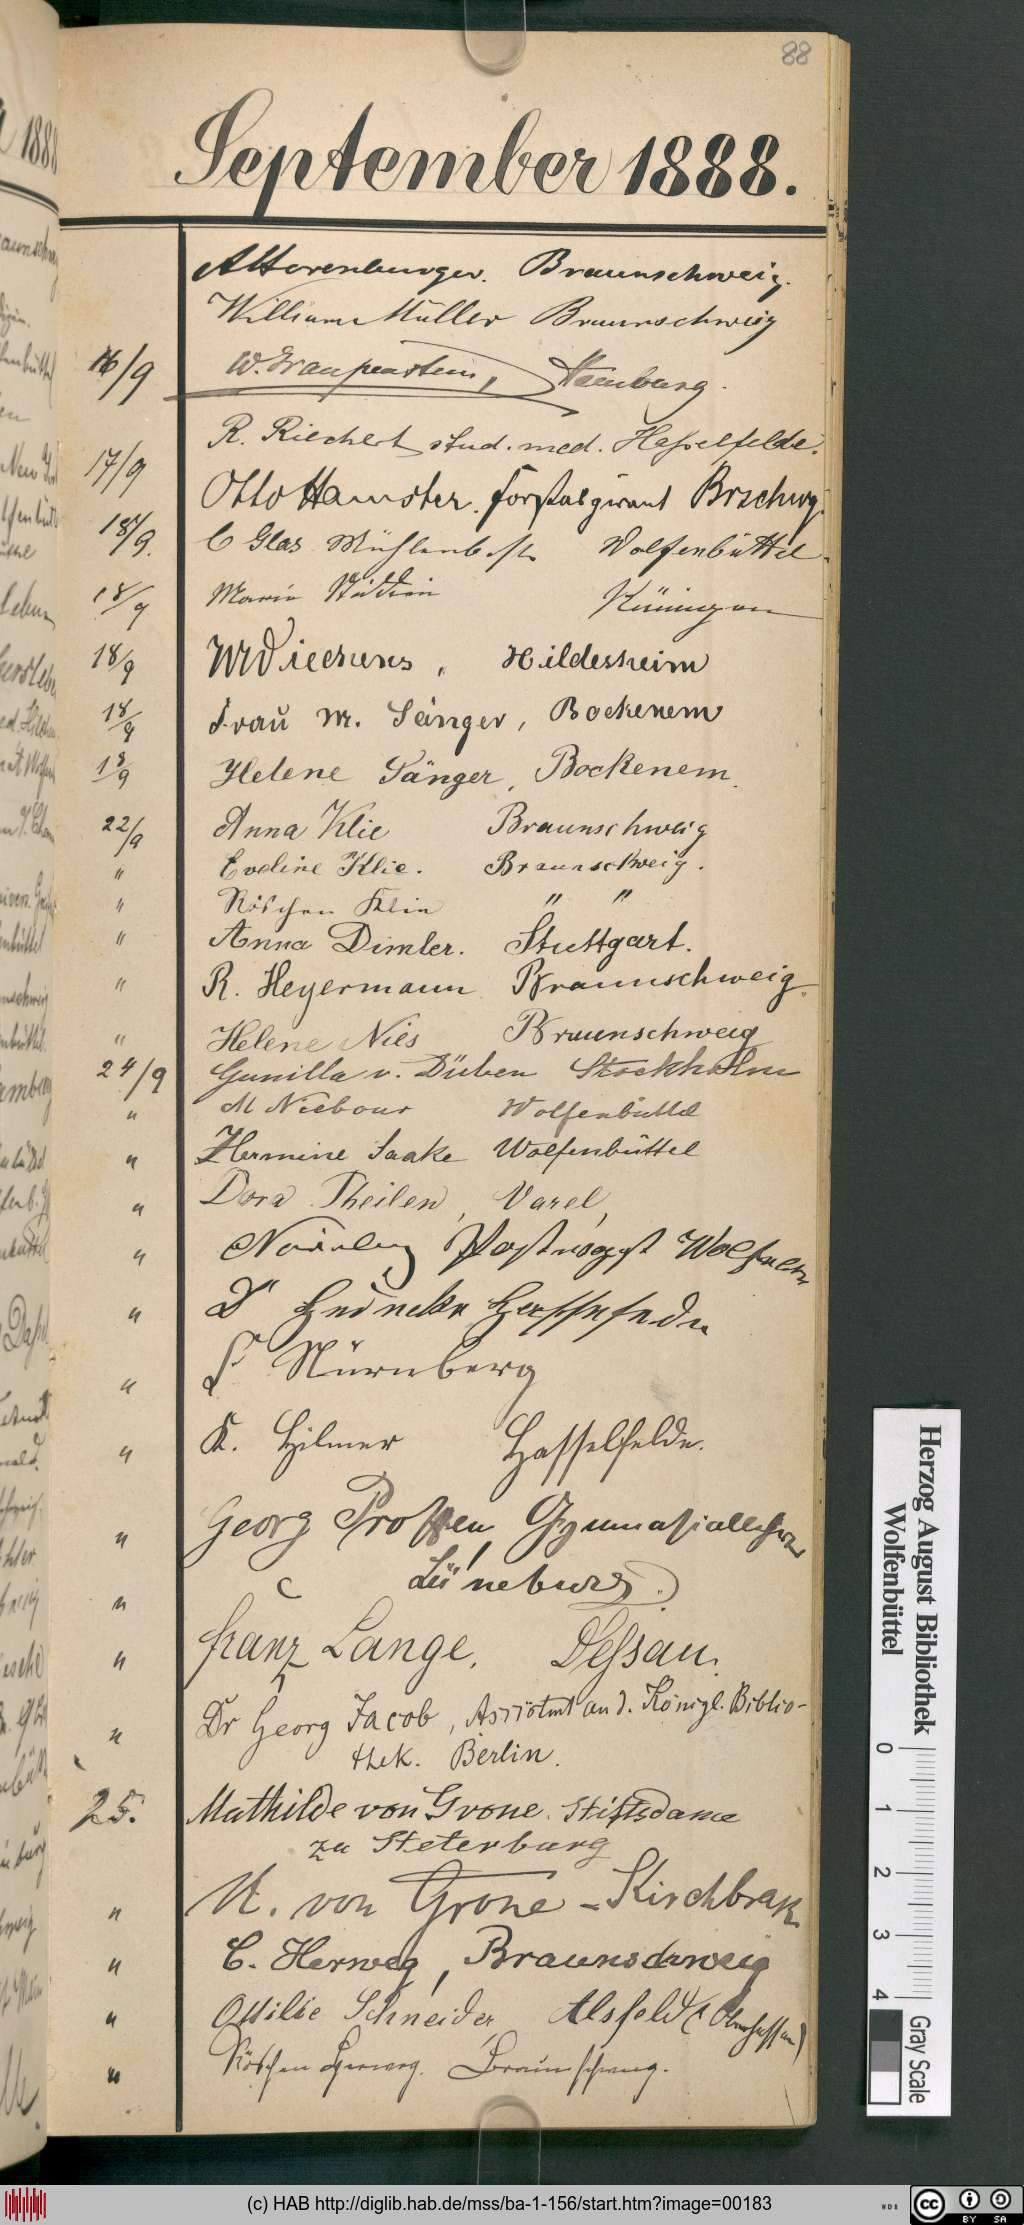 88
September 1888.
Braunschweig.
William Müller Braunschweig
16/9 W. Hamburg.
R. Riechert stud. med. Hasselfelde.
17/9
Otto Hamster. Forstaspirant Brschwg.
18/9. C Glas Wolfenbüttel.
18/9 Marie
18/9 Hildesheim
18/9 Frau M. Sänger, Bockenem
18/9 Helene Sänger, Bockenem.
22/9 Anna Klie Braunschweig
" Eveline Klie. Braunschweig.
" Röschen Klie " "
" Anna Dimler. Stuttgart.
" R. Heyermann Braunschweig.
" Helene Nies Braunschweig
24/9 Gunilla v. Düben Stockholm
" M Niebour Wolfenbüttel
" Hermine Saake Wolfenbüttel
" Dora Theilen, Varel,
"
" Dr
" Nürnberg
" K. Hilmer Hasselfelde.
" Georg Gymnasiallehrer
" Lüneburg.
" Franz Lange. Deßau.
" Dr Georg Jacob, Assistent an d. Königl. Biblio-
thek. Berlin.
25. Mathilde von Grone. Stiftsdame
zu Steterburg
" von Grone - Kirchbrak
" C. Herweg, Braunschweig
" Ottilie Schneider Alsfeld (Oberhessen)
" Röschen Herweg. Braunschweig.
Herzog August Bibliothek
Wolfenbüttel
0 1 2 3 4
Gray Scale
(c) HAB http://diglib.hab.de/mss/ba-1-156/start.htm?image=00183
WDB
cc BY SA